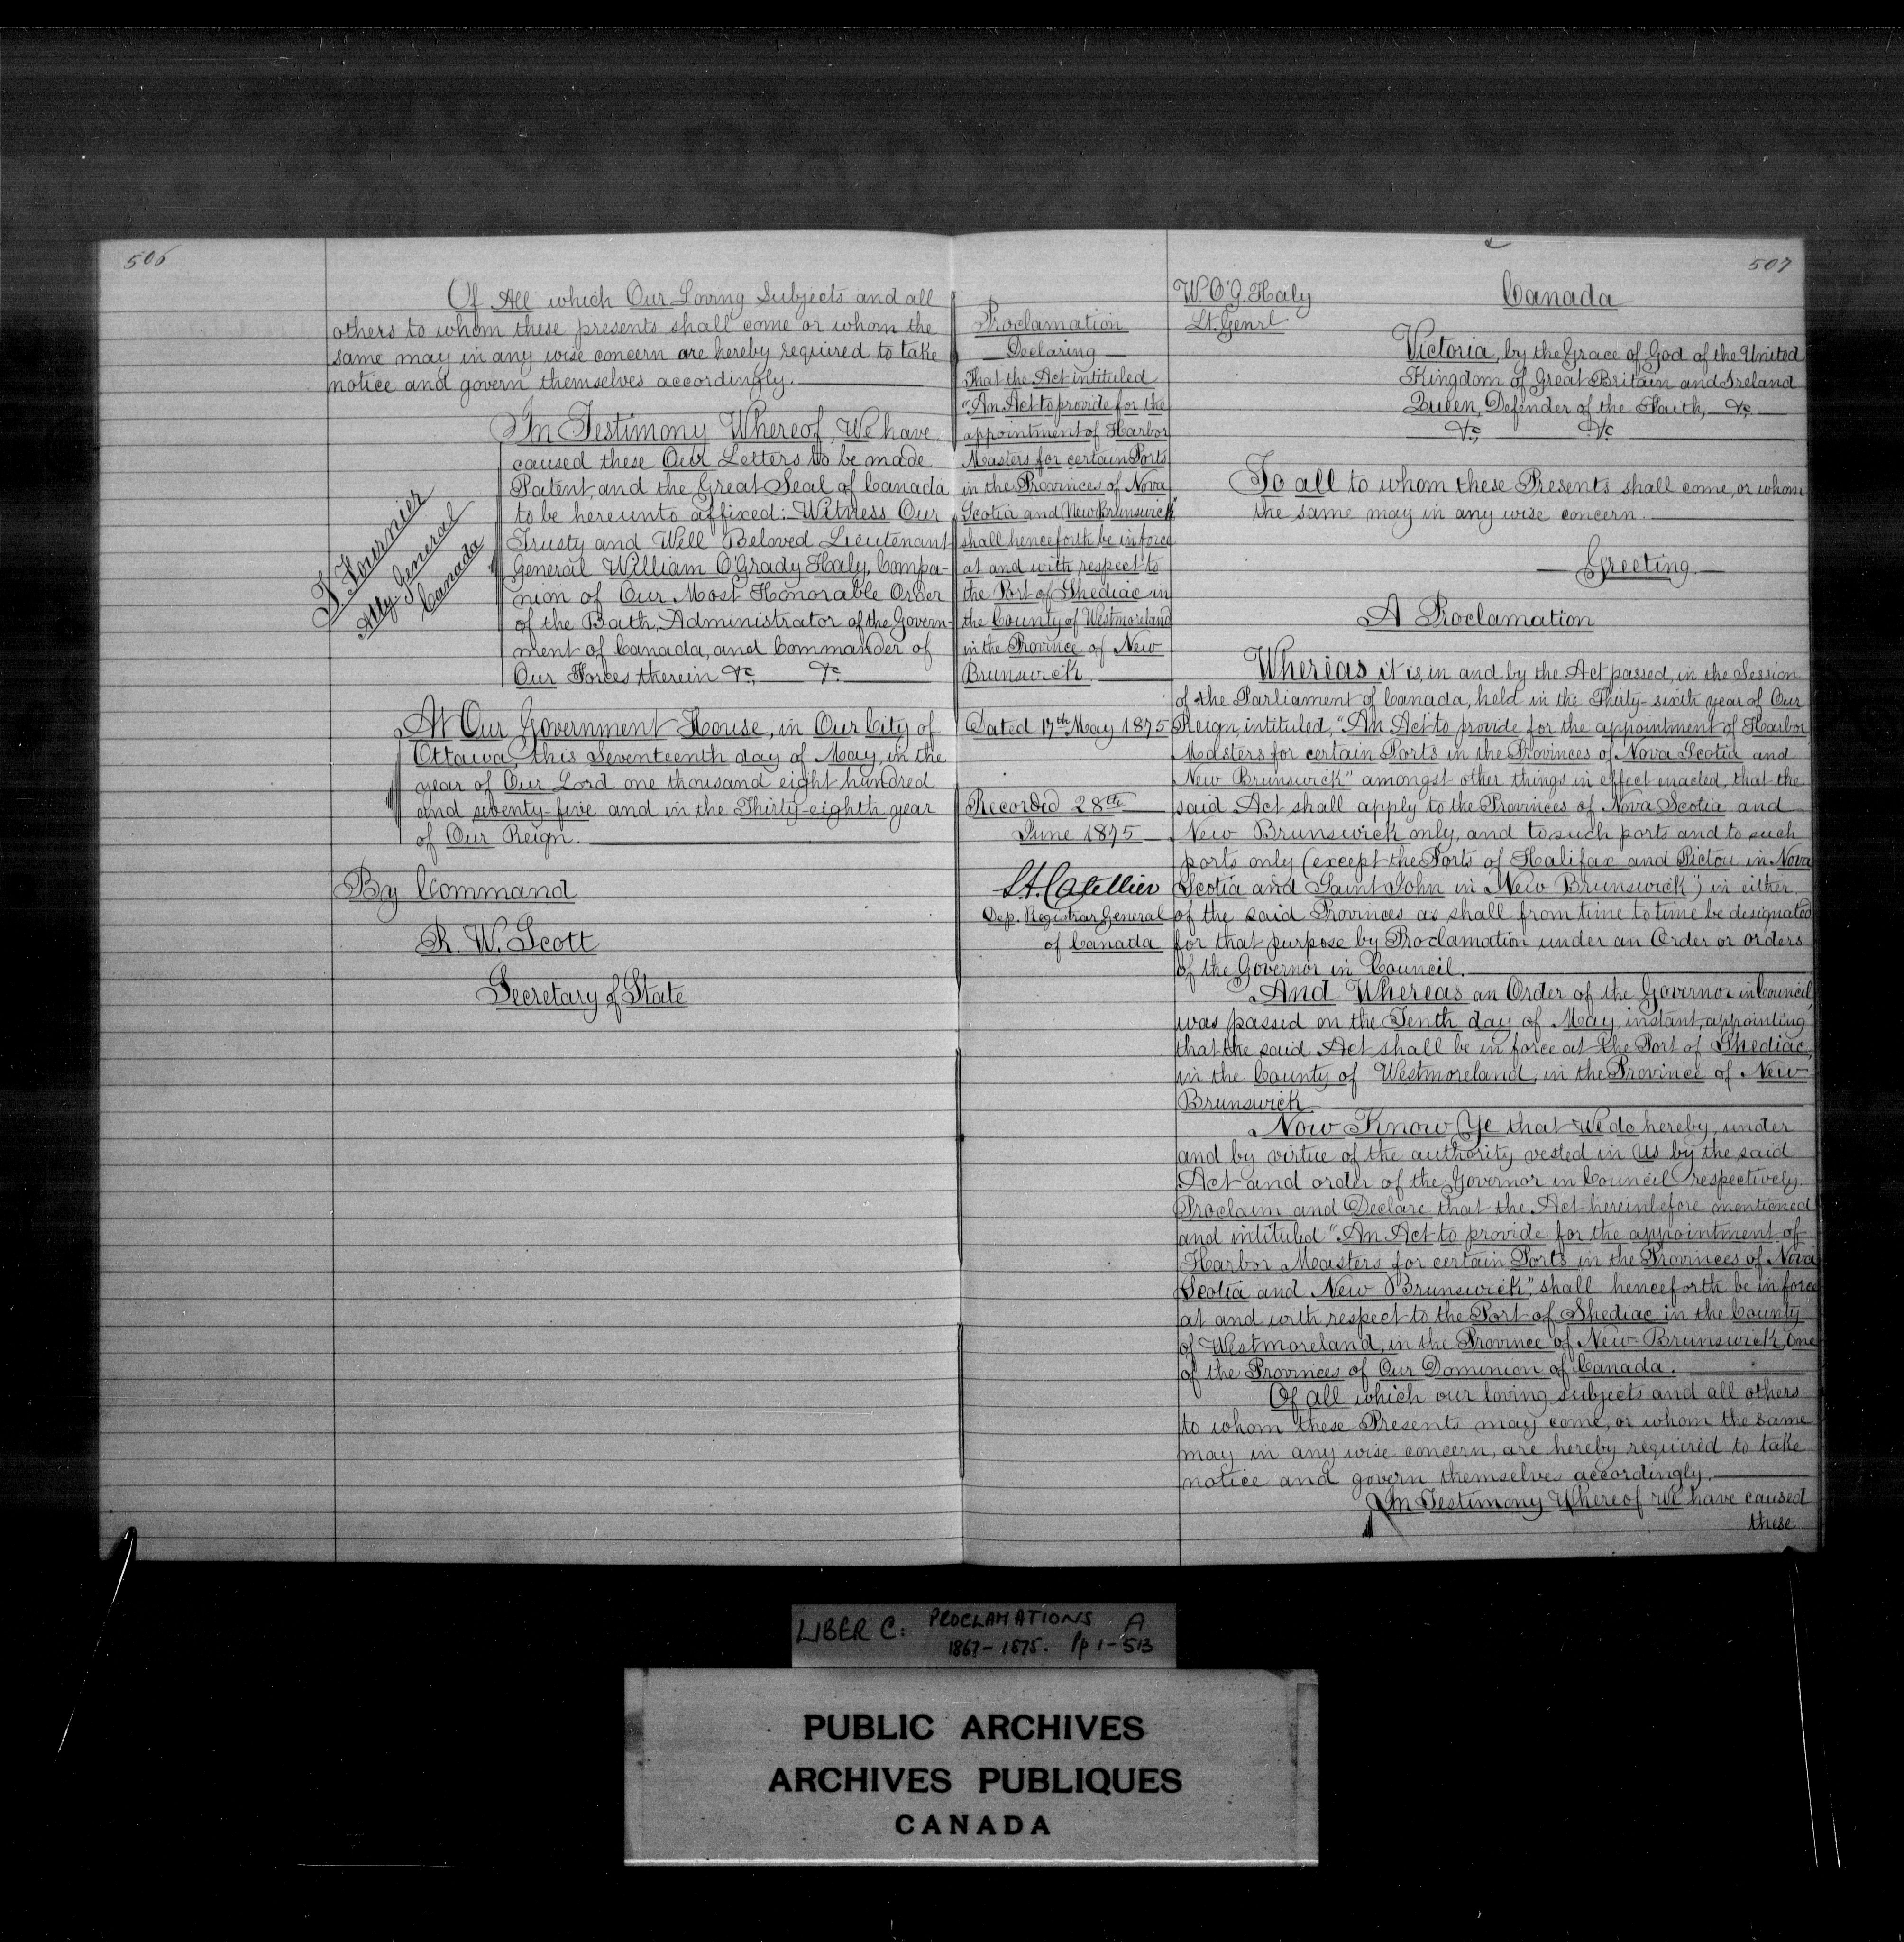 506
Of All which Our Loving Subjects and all
others to whom these presents shall come or whom the
same may in any wise concern are hereby required to take
notice and govern themselves accordingly.
In Testimony Whereof, We have
caused these Our Letters to be made
Patent, and the Great Seal of Canada
to be hereunto affixed: Witness Our
Trusty and Well Beloved Lieutenant
General William O'Grady Haly, Compa-
nion of Our Most Honorable Order
of the Bath, Administrator of the Govern-
ment of Canada, and Commander of
Our Forces therein &c, &c
T. Fournier
Atty General
Canada
At Our Government House, in Our City of
Ottawa, this Seventeenth day of May, in the
year of Our Lord one thousand eight hundred
and seventy-five and in the Thirty-eighth year
of Our Reign.
By Command
R. W. Scott
Secretary of State
507
Proclamation
Declaring
That the Act intituled
"An Act to provide for the
appointment of Harbor
Masters for certain Ports
in the Provinces of Nova
Scotia and New Brunswick"
shall henceforth be in force
at and with respect to
the Port of Shediac in
the County of Westmoreland
in the Province of New
Brunswick.
Dated 17th May 1875
Recorded 28th
June 1875
Dep. Registrar General
of Canada
W. O'G. Haly
Lt. Genrl
Canada
Victoria, by the Grace of God of the United
Kingdom of Great Britain and Ireland
Queen, Defender of the Faith, &c
&c, &c
To all to whom these Presents shall come, or whom
the same may in any wise concern.
Greeting
A Proclamation
Whereas it is, in and by the Act passed, in the Session
of the Parliament of Canada, held in the Thirty-sixth year of Our
Reign, intituled, "An Act to provide for the appointment of Harbor
Masters for certain Ports in the Provinces of Nova Scotia and
New Brunswick" amongst other things in effect enacted, that the
said Act shall apply to the Provinces of Nova Scotia and
New Brunswick only, and to such ports and to such
ports only (except the Ports of Halifax and Pictou in Nova
Scotia and Saint John in New Brunswick") in either
of the said Provinces as shall from time to time be designated
for that purpose by Proclamation under an Order or orders
of the Governor in Council.
And Whereas an Order of the Governor in Council,
was passed on the Tenth day of May, instant, appointing
that the said Act shall be in force at the Port of Shediac,
in the County of Westmoreland, in the Province of New
Brunswick.
Now Know Ye that We do hereby, under
and by virtue of the authority vested in Us by the said
Act and order of the Governor in Council respectively
Proclaim and Declare that the Act hereinbefore mentioned
and intituled "An Act to provide for the appointment of
Harbor Masters for certain Ports in the Provinces of Nova
Scotia and New Brunswick," shall henceforth be in force
at and with respect to the Port of Shediac in the County
of Westmoreland, in the Province of New Brunswick, One
of the Provinces of Our Dominion of Canada.
Of all which our loving subjects and all others
to whom these Presents may come, or whom the same
may in any wise concern, are hereby required to take
notice and govern themselves accordingly.
In Testimony Whereof We have caused
these
LIBER C: PROCLAMATIONS A
1867-1875. Pp 1-513
PUBLIC ARCHIVES
ARCHIVES PUBLIQUES
CANADA